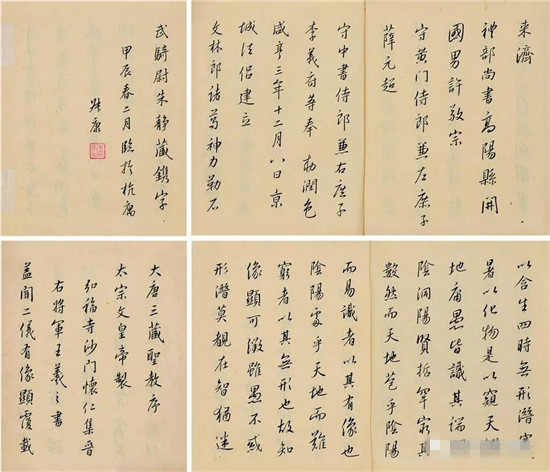 来濟
禮部尚書高陽縣開
國男許敬宗
守黄门侍郎兼左庶子
薛元超
守中書侍郎兼右庶子
李義府等奉 勅潤色
咸亨三年十二月八日京
城法侣建立
文林郎諸葛神力勒石
武騎尉朱静藏鐫字
甲辰春二月臨於杭寓
康
以含生四時無形潛寒
暑以化物是以窺天
地庸愚皆識其端明
陰洞陽賢拮罕窮其
數然而天地苞乎陰陽
而易識者以其有像也
陰陽處乎天地而難
窮者以其無形也故知
像顯可徵雖愚不惑
形潛莫覩在智猶迷
大唐三藏聖教序
太宗文皇帝製
弘福寺沙门懷仁集晋
右將軍王羲之書
蓋聞二儀有像顯覆載